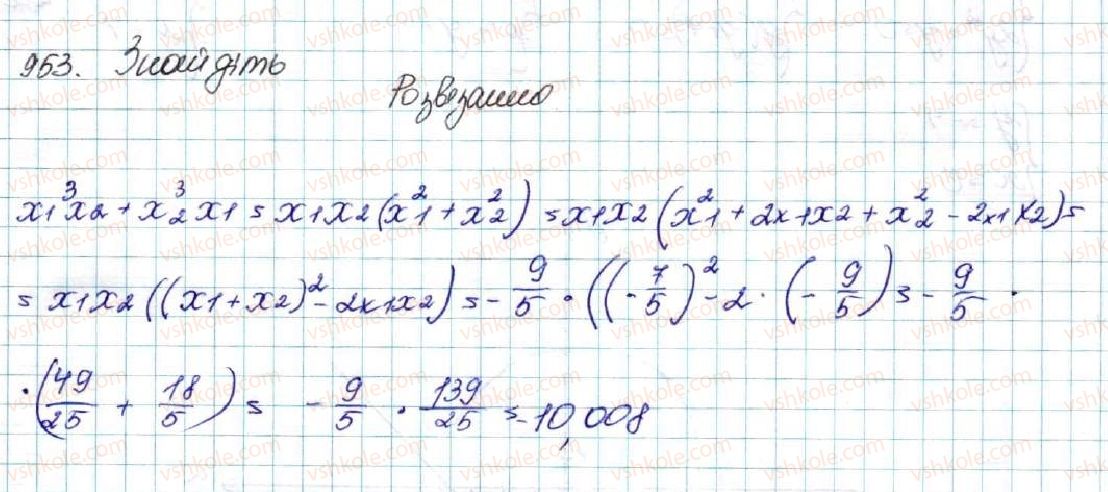 953. Знайдіть
Розв'язання
x1³x2 + x2³x1 = x1x2(x1² + x2²) = x1x2(x1² + 2x1x2 + x2² - 2x1x2) =
= x1x2((x1 + x2)² - 2x1x2) = - 9/5 · ((- 7/5)² - 2 · (- 9/5)) = - 9/5 ·
· (49/25 + 18/5) = - 9/5 · 139/25 = -10,008